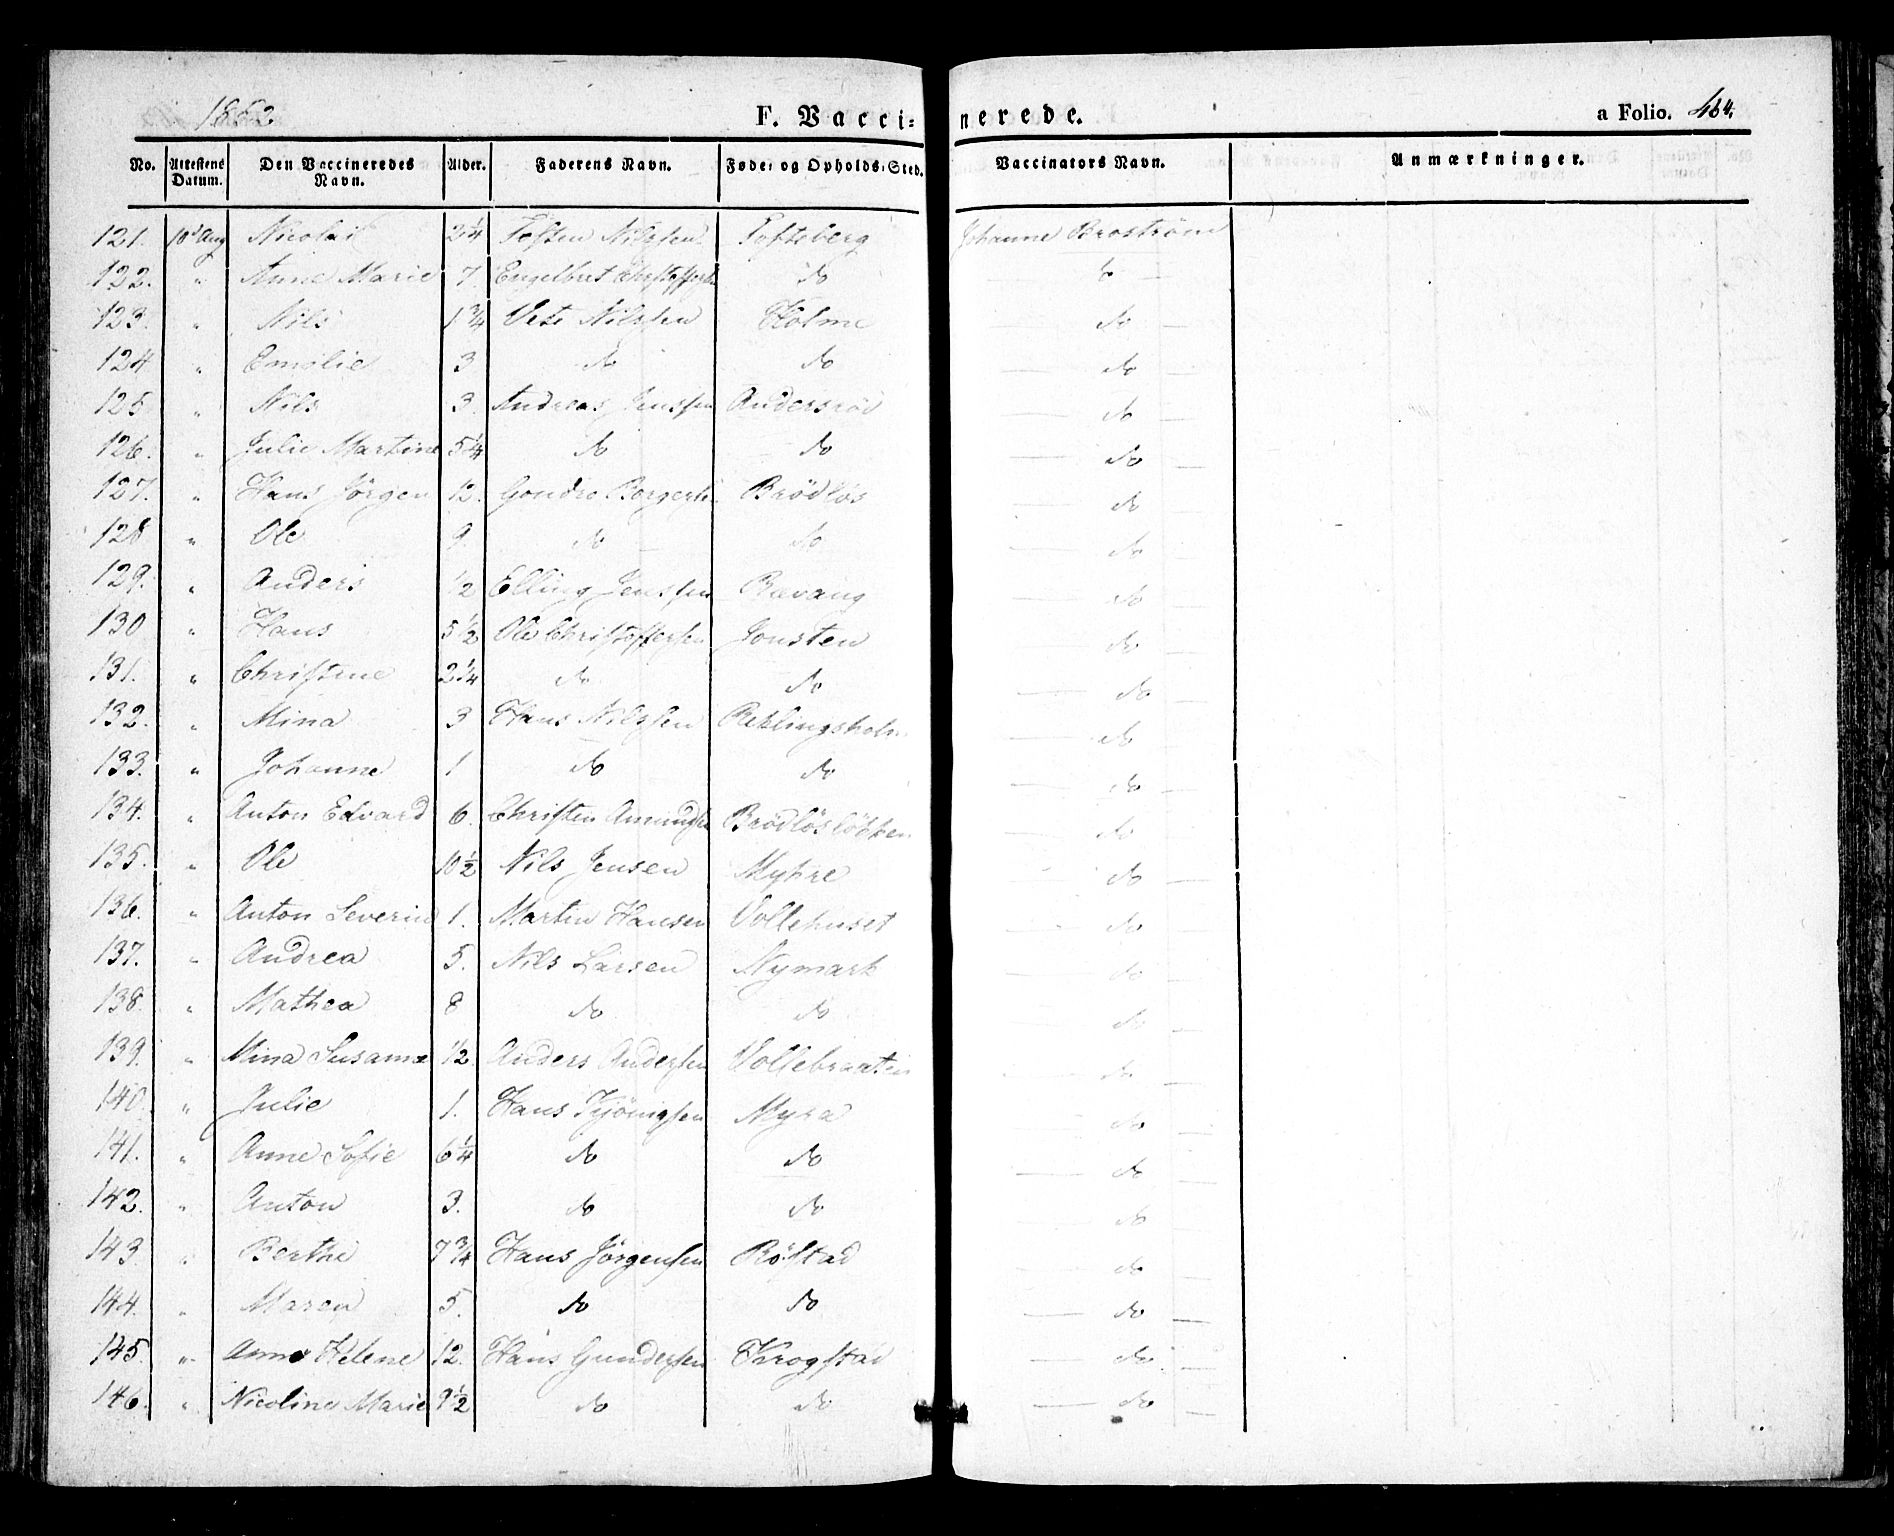 1852 F. Vaccinerede. a Folio. 464.
No. Attestens Datum. Den Vaccineredes Navn. Alder. Faderens Navn. Føde- og Opholds-Sted. Vaccinators Navn. Anmærkninger.
121. 10d Aug Nicolai 2 1/4 Tosten Nilssen Tofteberg Johanne Broström
122. " Anne Marie 7. Engelbret Christoffersen do do
123. " Nils 1 3/4 Nilssen Holme do
124 " Emilie 3 do do do
125 " Nils 3. Andreas Jenssen Andersröd do
126. " Julie Martine 5 1/4 do do do
127. " Hans Jörgen 12. Borgersen Brödlös do
128 " Ole 9. do do do
129. " Anders 1/2 Elling Jenssen Revaug do
130 " Hans 5 1/2 Ole Christoffersen Jonsten do
131. " Christine 2 1/4 do do do
132. " Mina 3 Hans Nilssen Reklingsholm do
133. " Johanne 1 do do do
134. " Anton Edvard 6. Christen Amundsen Brödlöslökken do
135. " Ole 10 1/2 Nils Jensen Myhre do
136. " Anton Severin 1. Martin Hansen Vollehuset do
137. " Andrea 5. Nils Larsen Nymark do
138. " Mathea 8 do do do
139. " Mina Susanne 1/2. Anders Andersen Vollebraaten do
140. " Julie 1. Hans Kjönigsen Myra do
141. " Anne Sofie 6 1/4 do do do
142. " Anton 3. do do do
143. " Berthe 7 3/4 Hans Jörgensen Röstad do
144. " Maren 5. do do do
145. " Anne Helene 12. Hans Gundersen Krogstad do
146. " Nicoline Marie 9 1/2 do do do